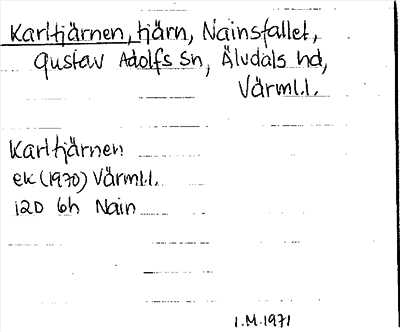 Karltjärnen, tjärn, Nainsfallet,
Gustav Adolfs Sn, Älvdals hd,
Värml.l.
Karltjärnen
ek (1970) Värml.l.
12D 6h Nain
I.M. 1971